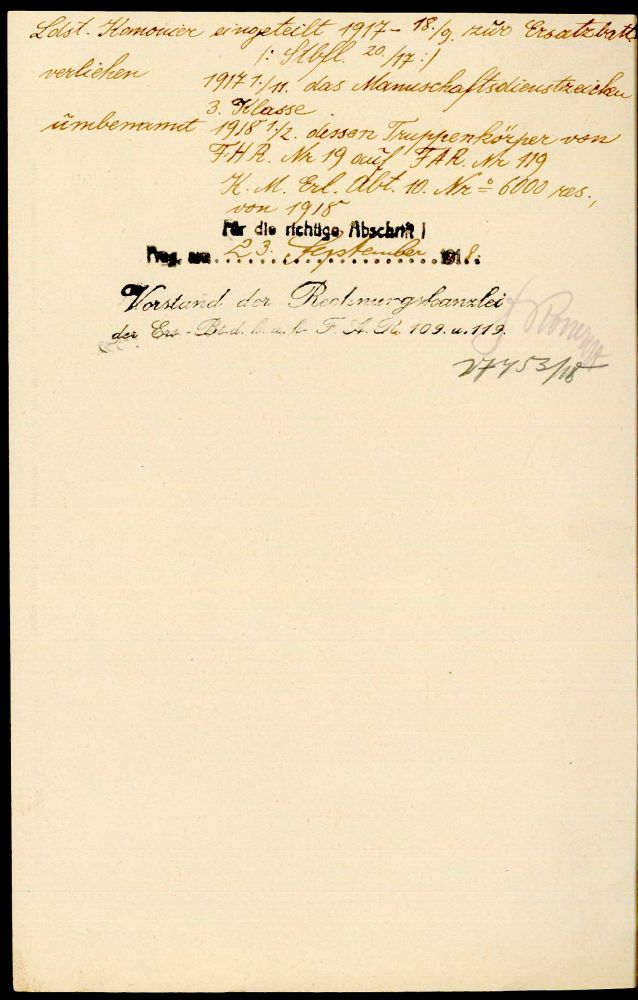 Ldst. Kanonier eingeteilt 1917 - 18./9. zur Ersatzbatt.
/: Stbfl. 20/17 :/
verliehen 1917 1./11. das Mannschaftsdienstzeichen
3. Klasse
umbenannt 1918 1./2. dessen Truppenkörper von
F.H.R. Nr 19 auf F.A.R. Nr 119
K. M. Erl. Abt. 10. Nr º 6000 res.,
von 1918
Für die richtige Abschrift!
Prag, am 23. September 1918.
Vorstand der Rechnungskanzlei
der Ers.-Bttd. k. u. k. F. A. R. 109. u. 119.
27753/18